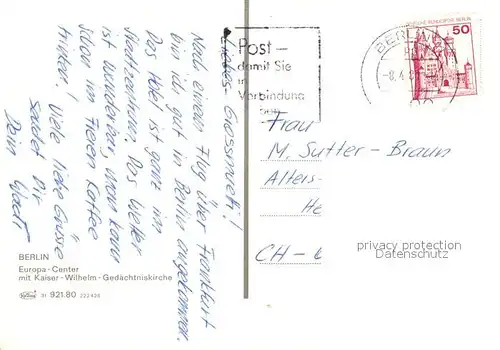 Liebes Grossmueti!
Nach einem Flug über Frankfurt
bin ich gut in Berlin angekommen.
Das Hotel ist ganz im
Stadtzentrum. Das Wetter
ist wunderbar, man kann
schon im Freien Kaffee
trinken! Viele liebe Grüsse
sendet Dir
Dein
Post –
damit Sie
in
Verbindung
BERLIN
-8.4.8
DEUTSCHE BUNDESPOST BERLIN
50
Frau
M. Sutter - Braun
Alters-
He
CH -
privacy protection
Datenschutz
BERLIN
Europa-Center
mit Kaiser-Wilhelm-Gedächtniskirche
31 921.80 222 426